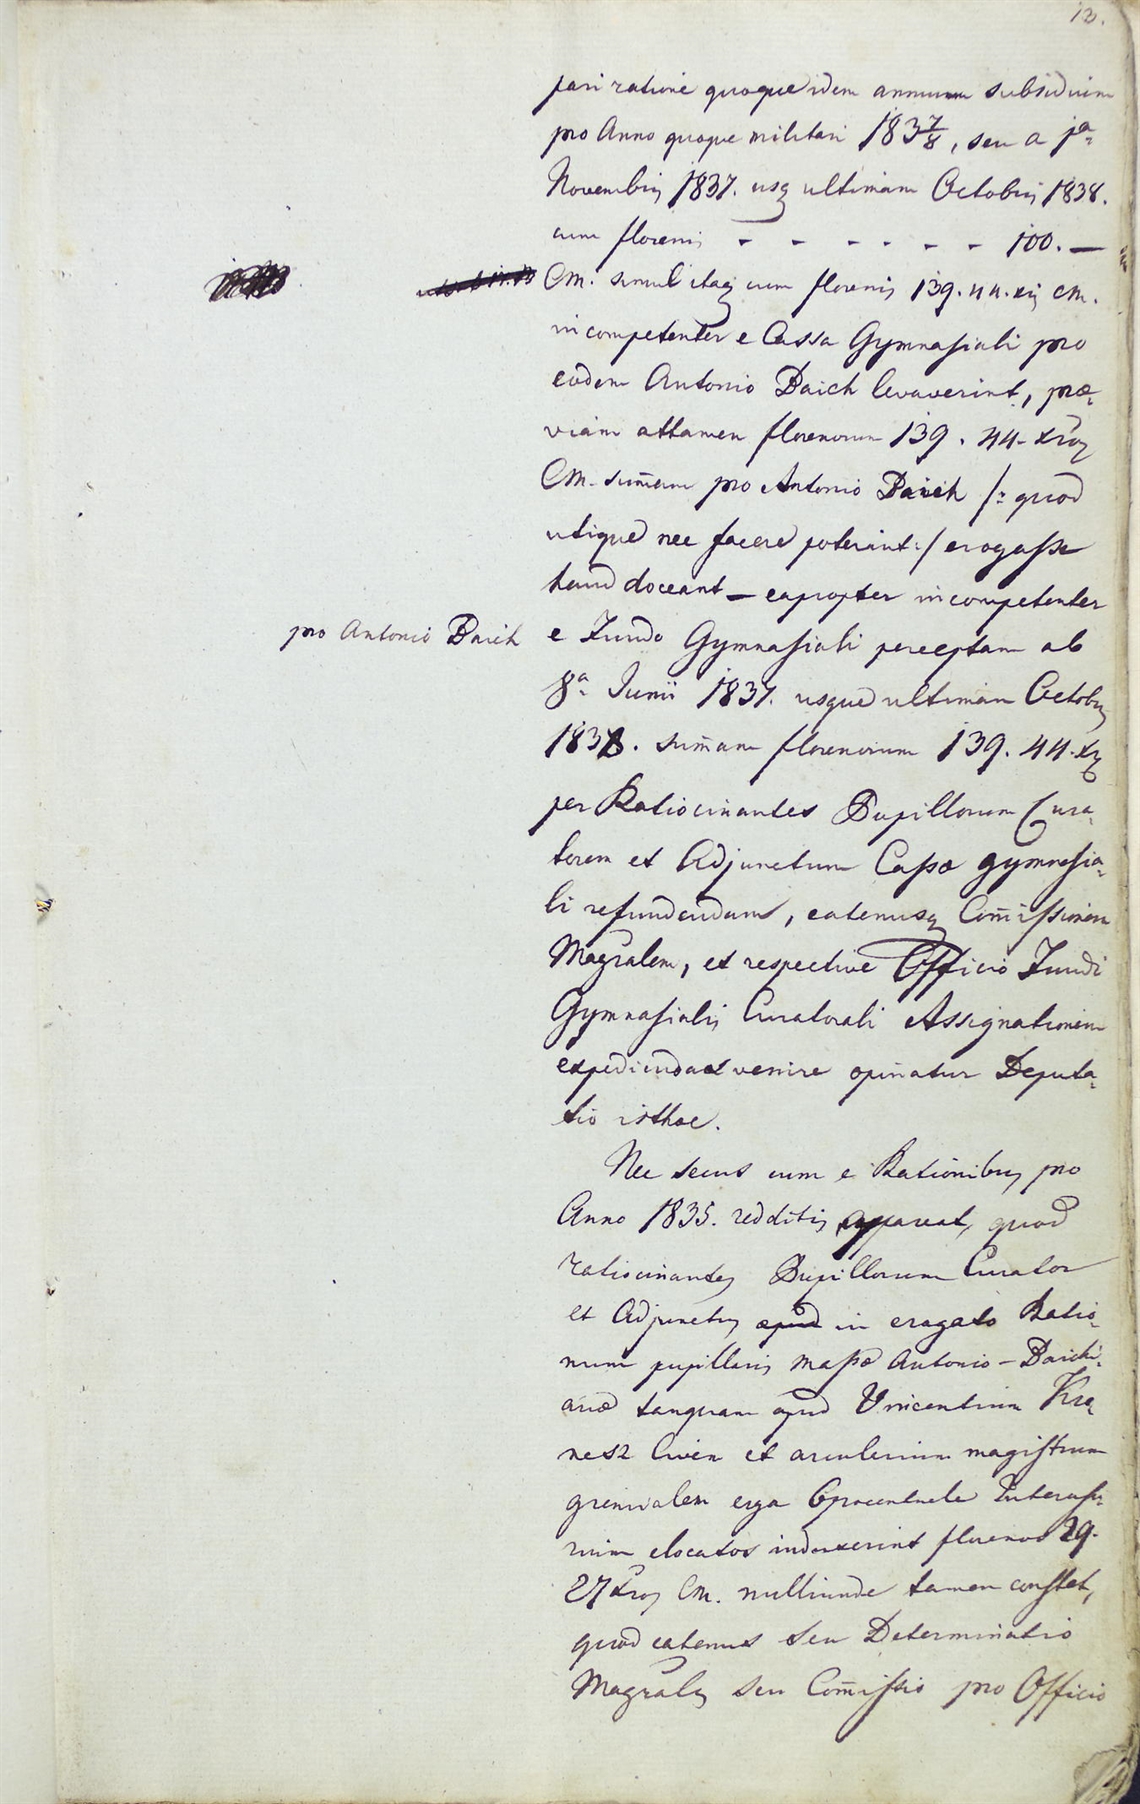 13.
pari ratione quoque idem annuum subsidium
pro Anno quoque militari 183 7/8, seu a 1a
Novembris 1837. usq ultimam Octobris 1838.
cum florenis - - - - - - 100. —
CM. simul itaq cum florenis 139. 44. xis CM.
incompetenter e Cassa Gymnasiali pro
eodem Antonio Baich levaverint, præ-
viam attamen florenorum 139. 44. xrorum
CM. summam pro Antonio Baich /: quod
utique nec facere poterint :/ erogasse
haud doceant — eapropter incompetenter
pro Antonio Baich
e Fundo Gymnasiali perceptam ab
8a Junii 1837. usque ultimam Octobris
1838. summam florenorum 139. 44. xr
per Ratiocinantes Pupillorum Cura-
torem et Adjunctum Cassæ gymnasia-
li refundendam, eatenusq Commissionem
Magralem, et respective Officio Fundi
Gymnasialis Curatorali Assignationem
expediendas venire opinatur Deputa-
tio isthæc.
Nec secus cum e Rationibus pro
Anno 1835. redditis appareat, quod
ratiocinantes Pupillorum Curator
et Adjunctus apud in erogato Ratio-
num pupillaris massæ Antonio-Baichi-
anæ tanquam apud Vincentium Kra-
nesz Civem et arculerium magistrum
gremialem erga 6procentuale Interusu-
rium elocatos induxerint florenos 29.
27 xros CM. nulliunde tamen constet,
quod eatenus seu Determinatio
Magralis seu Commissio pro Officio